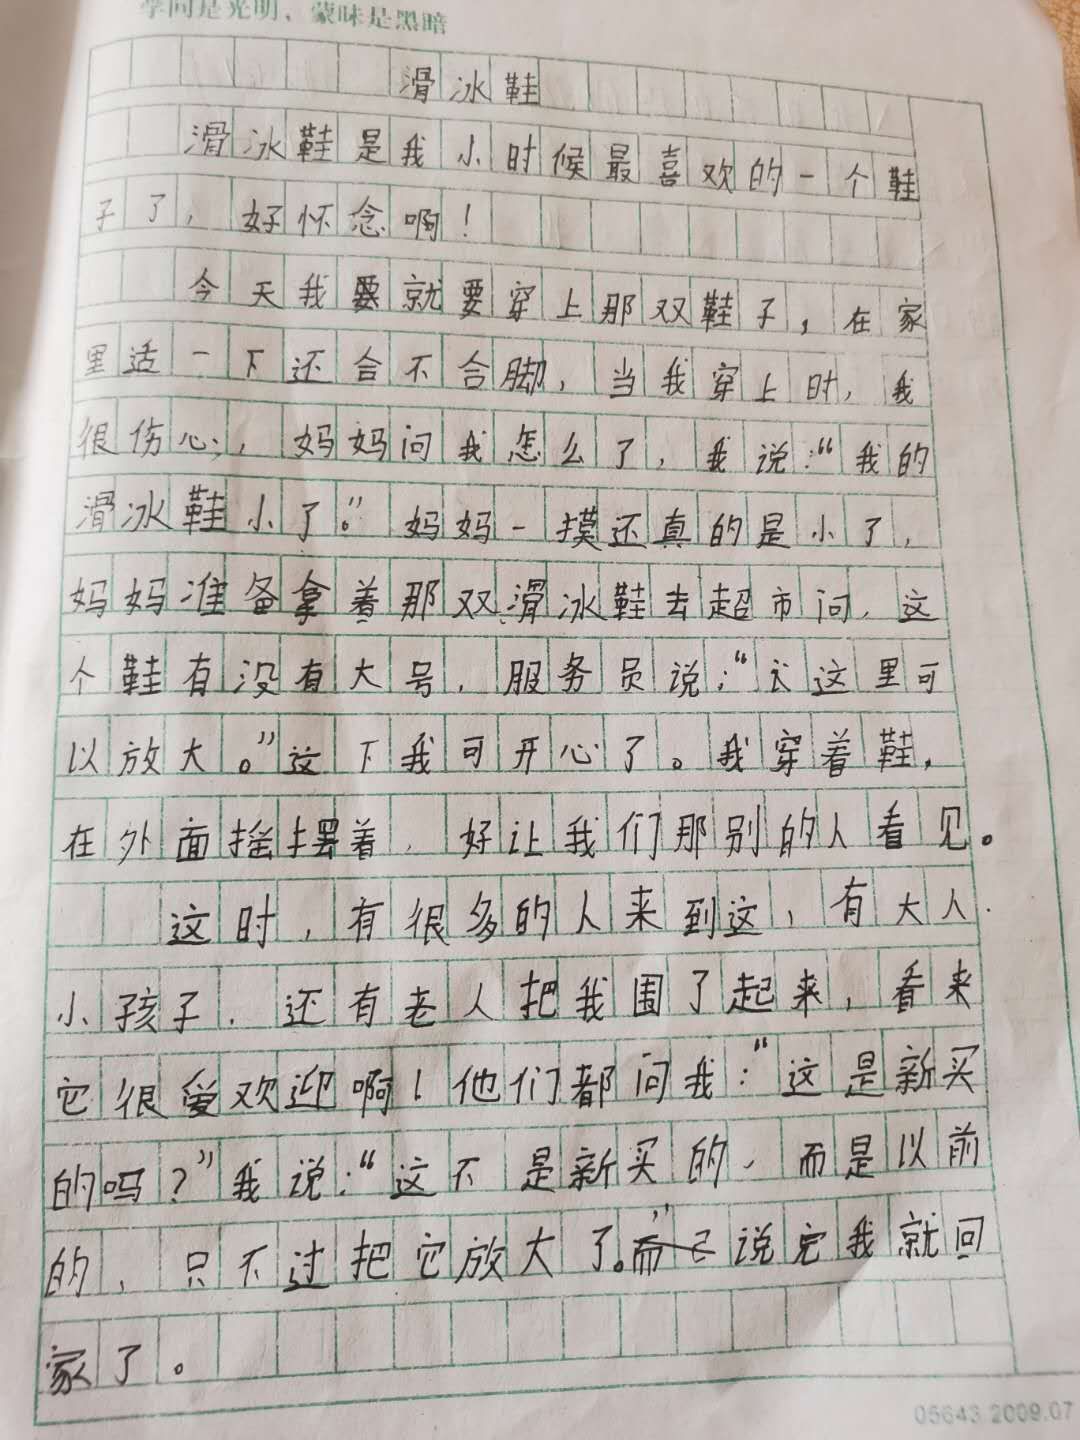 学问是光明，蒙昧是黑暗
滑冰鞋
滑冰鞋是我小时候最喜欢的一个鞋
子了，好怀念啊！
今天我要就要穿上那双鞋子，在家
里适一下还合不合脚，当我穿上时，我
很伤心，，妈妈问我怎么了，我说：“我的
滑冰鞋小了。”妈妈一摸还真的是小了，
妈妈准备拿着那双滑冰鞋去超市问，这
个鞋有没有大号，服务员说：“这里可
以放大。”这下我可开心了。我穿着鞋，
在外面摇摆着，好让我们那别的人看见。
这时，有很多的人来到这，有大人
小孩子，还有老人把我围了起来，看来
它很爱欢迎啊！他们都问我：“这是新买
的吗？”我说：“这不是新买的，而是以前
的，只不过把它放大了。”说完我就回
家了。
05643 2009.07